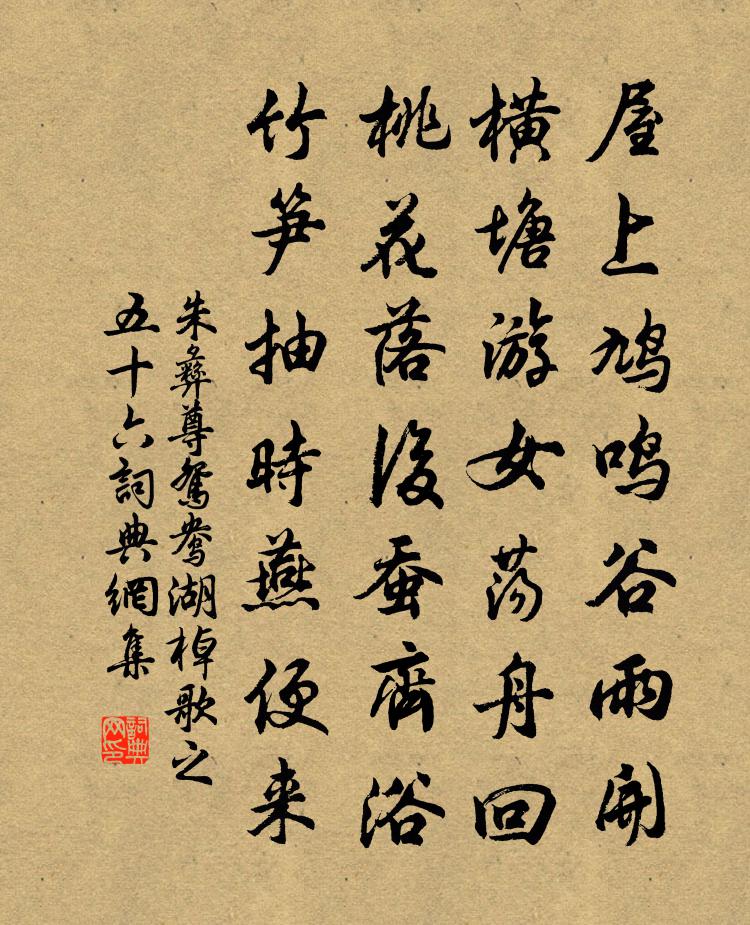 屋上鸠鸣谷雨開
横塘游女荡舟回
桃花落後蚕齊浴
竹笋抽時燕便来
朱彝尊鸳鸯湖棹歌之
五十六詞典網集
詞典网印